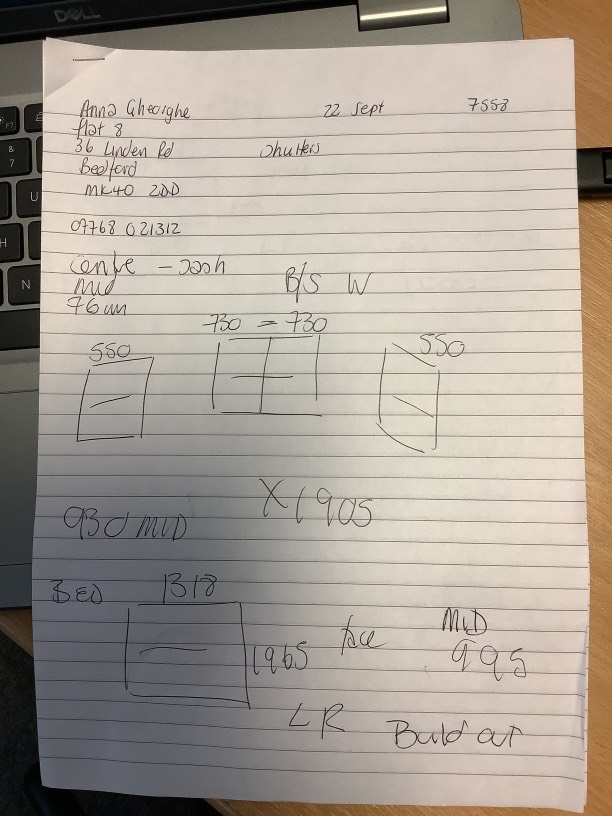 DELL
Anna Gheorghe 22 Sept 7558
flat 8
36 Linden Rd Shutters
Bedford
MK40 2DD
07768 021312
Centre - sash
Mid B/S W
76cm
730 = 730
550 550
930 MID X1905
BED 1318
1965 face MID
995
L R Build out